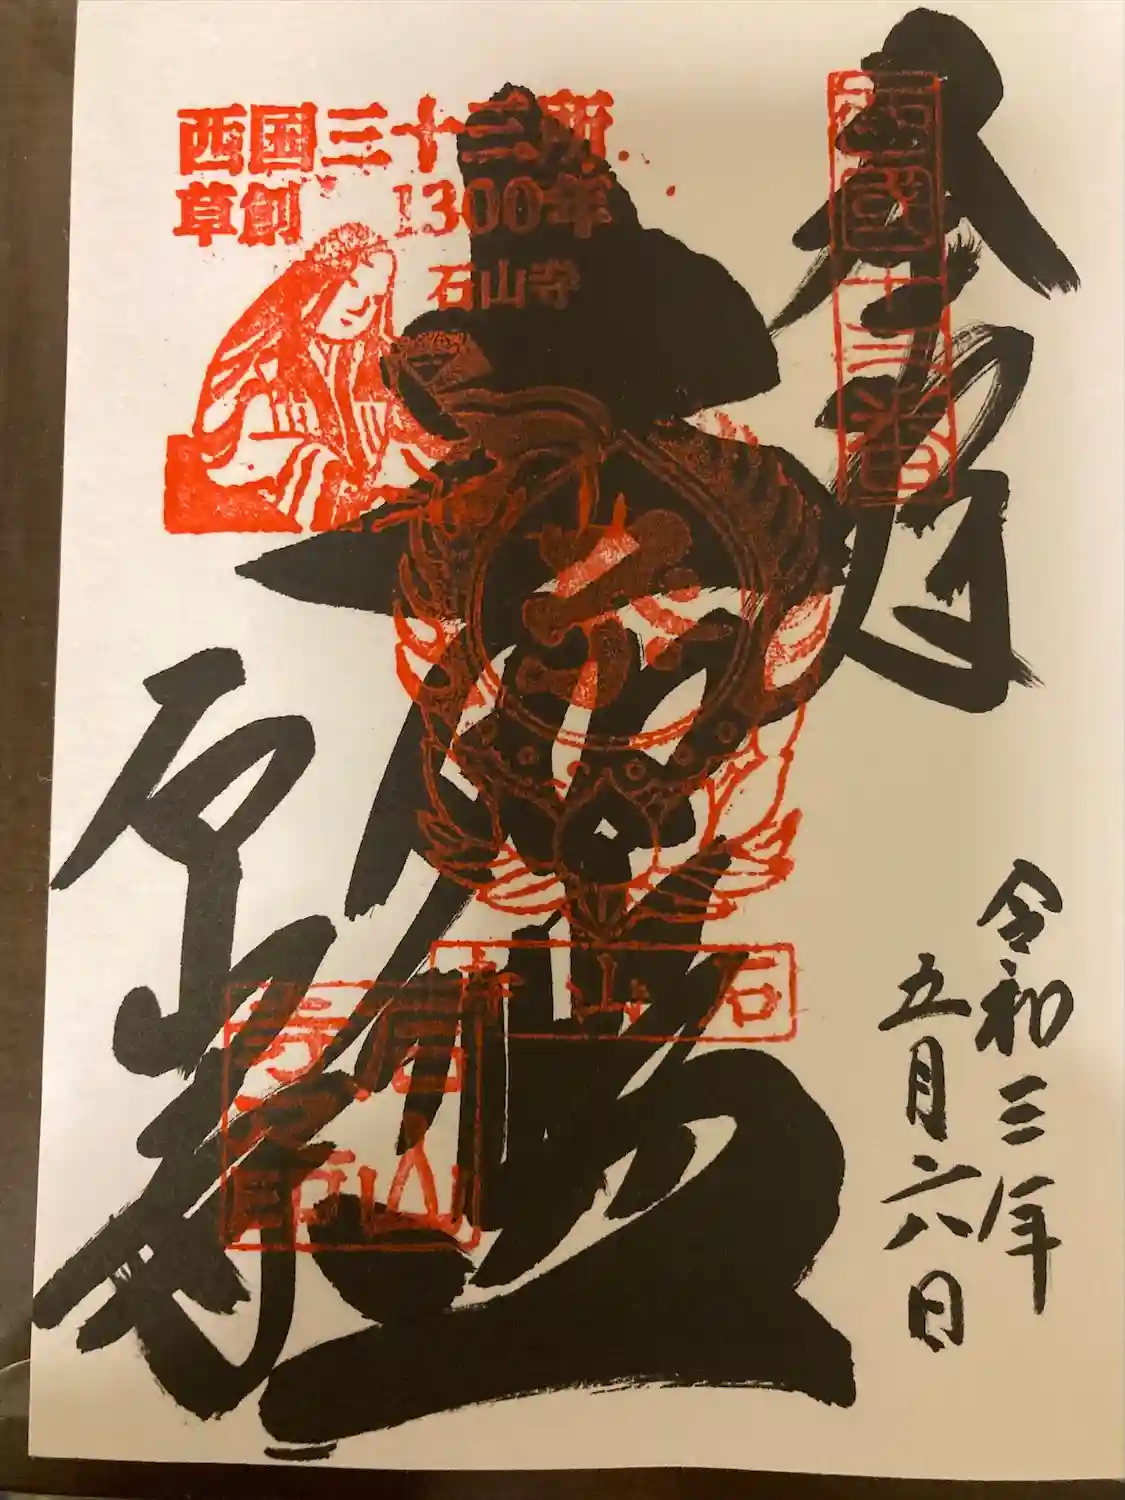 奉拝
西國十三番
令和三年
五月六日
西国三十三所
草創 1300年
石山寺
石山寺
石山寺
石山
寺之印